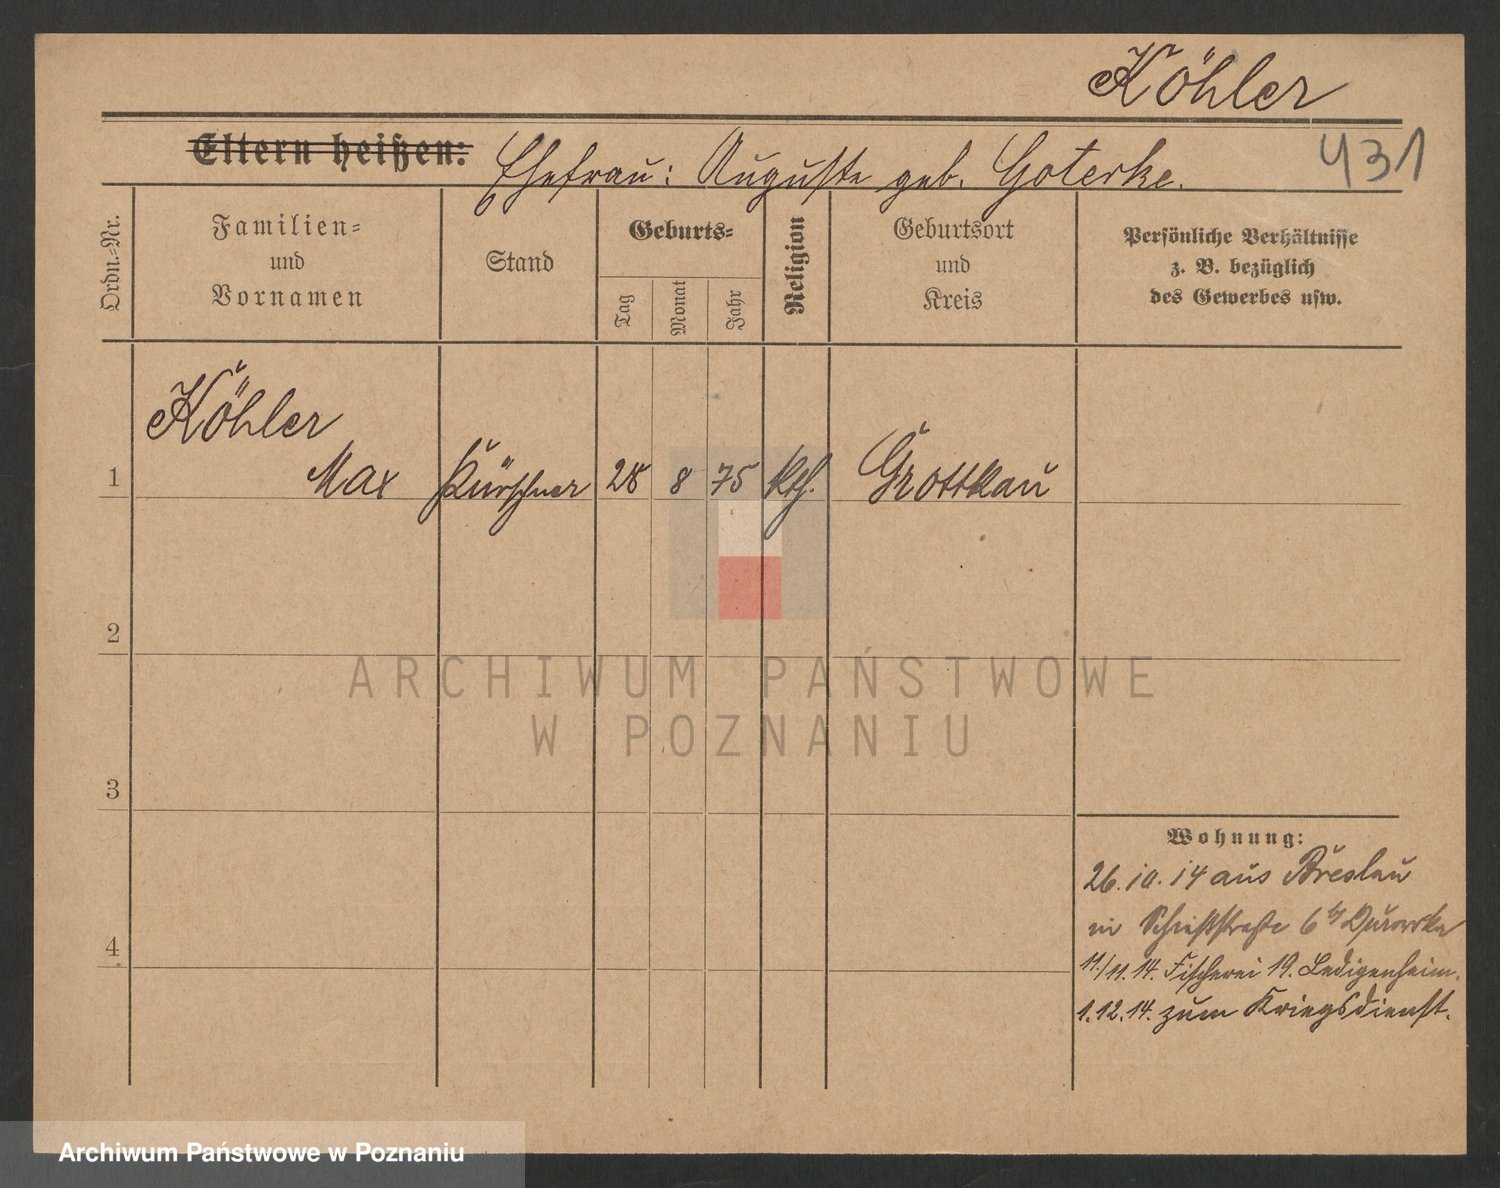 Köhler
Eltern heißen: Ehefrau: Auguste geb. Goterke.
431
Ordn.-Nr.
Familien-
und
Vornamen
Stand
Geburts-
Tag
Monat
Jahr
Religion
Geburtsort
und
Kreis
Persönliche Verhältnisse
z. B. bezüglich
des Gewerbes usw.
Köhler
1 Max Kürschner 28 8 75 kth. Grottkau
2
ARCHIWUM PAŃSTWOWE
W POZNANIU
3
Wohnung:
26.10.14 aus Breslau
in Schießstraße 6
4
11./11.14. Fischerei 19. Ledigenheim.
1.12.14. zum Kriegsdienst.
Archiwum Państwowe w Poznaniu